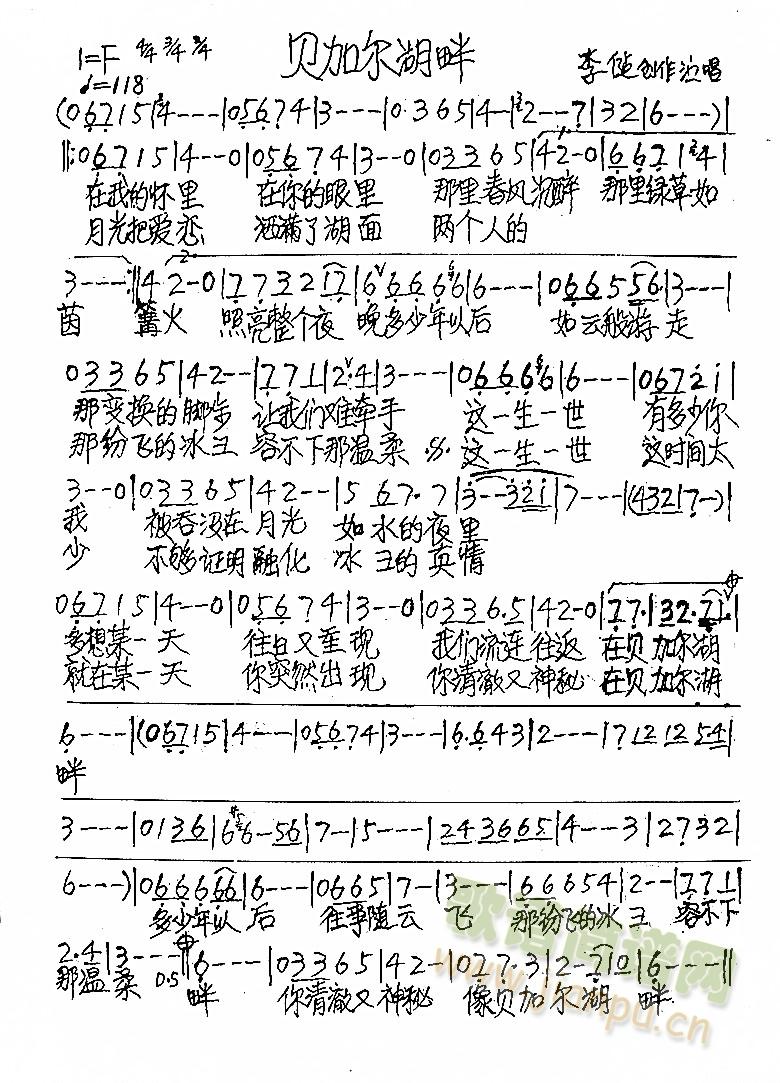 贝加尔湖畔
1=F 4/4 3/4 2/4
♩=118
李健创作演唱
(06715|4----|05674|3----|0·365|4--|2---7|32|6----)|
‖:06715|4---0|05674|3---0|03365|42-0|6671|24|
在我的怀里 在你的眼里 那里春风沉醉 那里绿草如
月光把爱恋 洒满了湖面 两个人的
3----:‖42-0|773217|666666|6----|066556·|3----|
茵 篝火 照亮整个夜晚 多少年以后 如云般游走
03365|42--|771|2·4|3----|066666|6----|06721|
那变换的脚步 让我们难牵手 这一生一世 有多少你
那纷飞的冰雪 容不下那温柔 .S. 这一生一世 这时间太
3--0|03365|42--|567·7|3--321|7---|(432|7--)|
我 被吞没在月光 如水的夜里
少 不够证明融化 冰雪的真情
06715|4---0|05674|3---0|0336·5|42-0|77·|32·71·|
多想某一天 往日又重现 我们流连往返 在贝加尔湖
就在某一天 你突然出现 你清澈又神秘 在贝加尔湖
6----|(06715|4----|05674|3----|6·643|2----|712 12 54|
畔
3----|0136|66-56|7--|5----|243665|4---3|2732|
6----)|066666|6----|0665|7--|3----|66654|2--|771|
多少年以后 往事随云飞 那纷飞的冰雪 容不下
2·4|3----‖6----|03365|42-|027·3|2-710|6----‖
那温柔 D.S 畔 你清澈又神秘 像贝加尔湖畔
歌谱简谱网
www.jianpu.cn